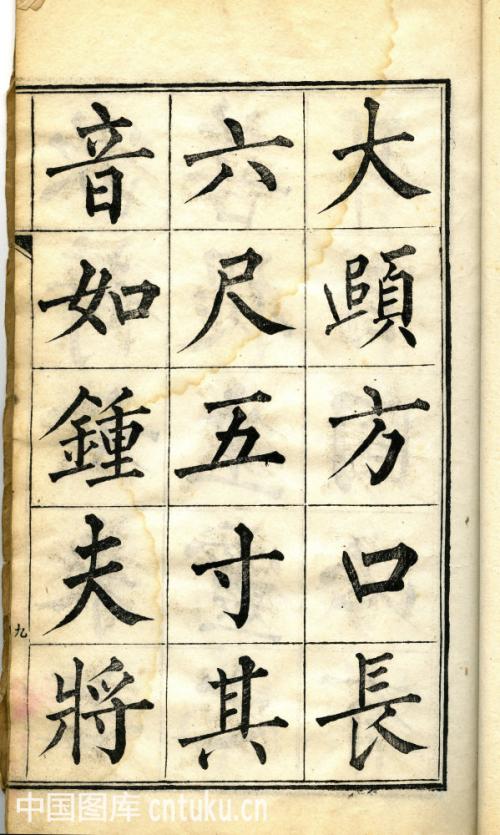 大頤方口長
六尺五寸其
音如鍾夫將
九
中国图库 cntuku.cn